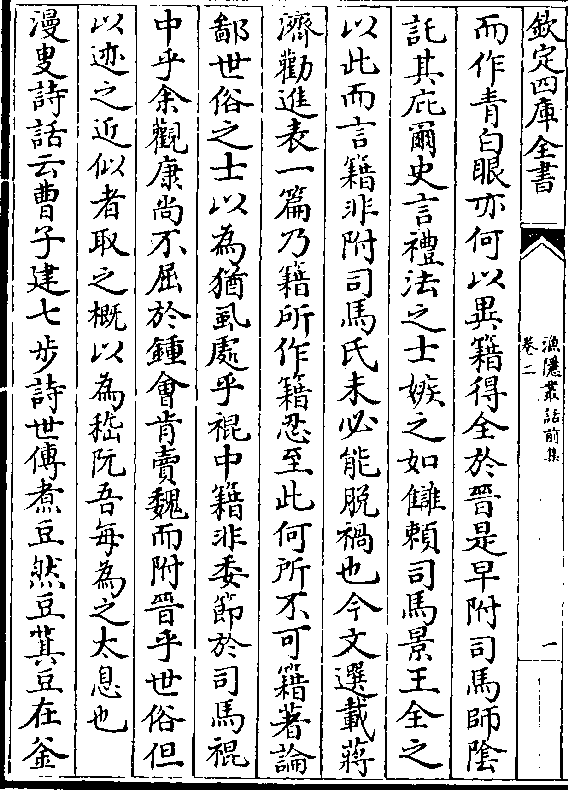 欽定四庫全書
漁隱叢話前集
卷二
一
而作青白眼亦何以異籍得全於晉是早附司馬師隂
託其庇爾史言禮法之士嫉之如讎賴司馬景王全之
以此而言籍非附司馬氏未必能脱禍也今文選載蔣
濟勸進表一篇乃籍所作籍忍至此何所不可籍著論
鄙世俗之士以為猶虱處乎裩中籍非委節於司馬裩
中乎余觀康尚不屈於鍾㑹肯賣魏而附晉乎世俗但
以迹之近似者取之概以為嵇阮吾每為之太息也
漫叟詩話云曹子建七歩詩世傳煮豆然豆萁豆在釡